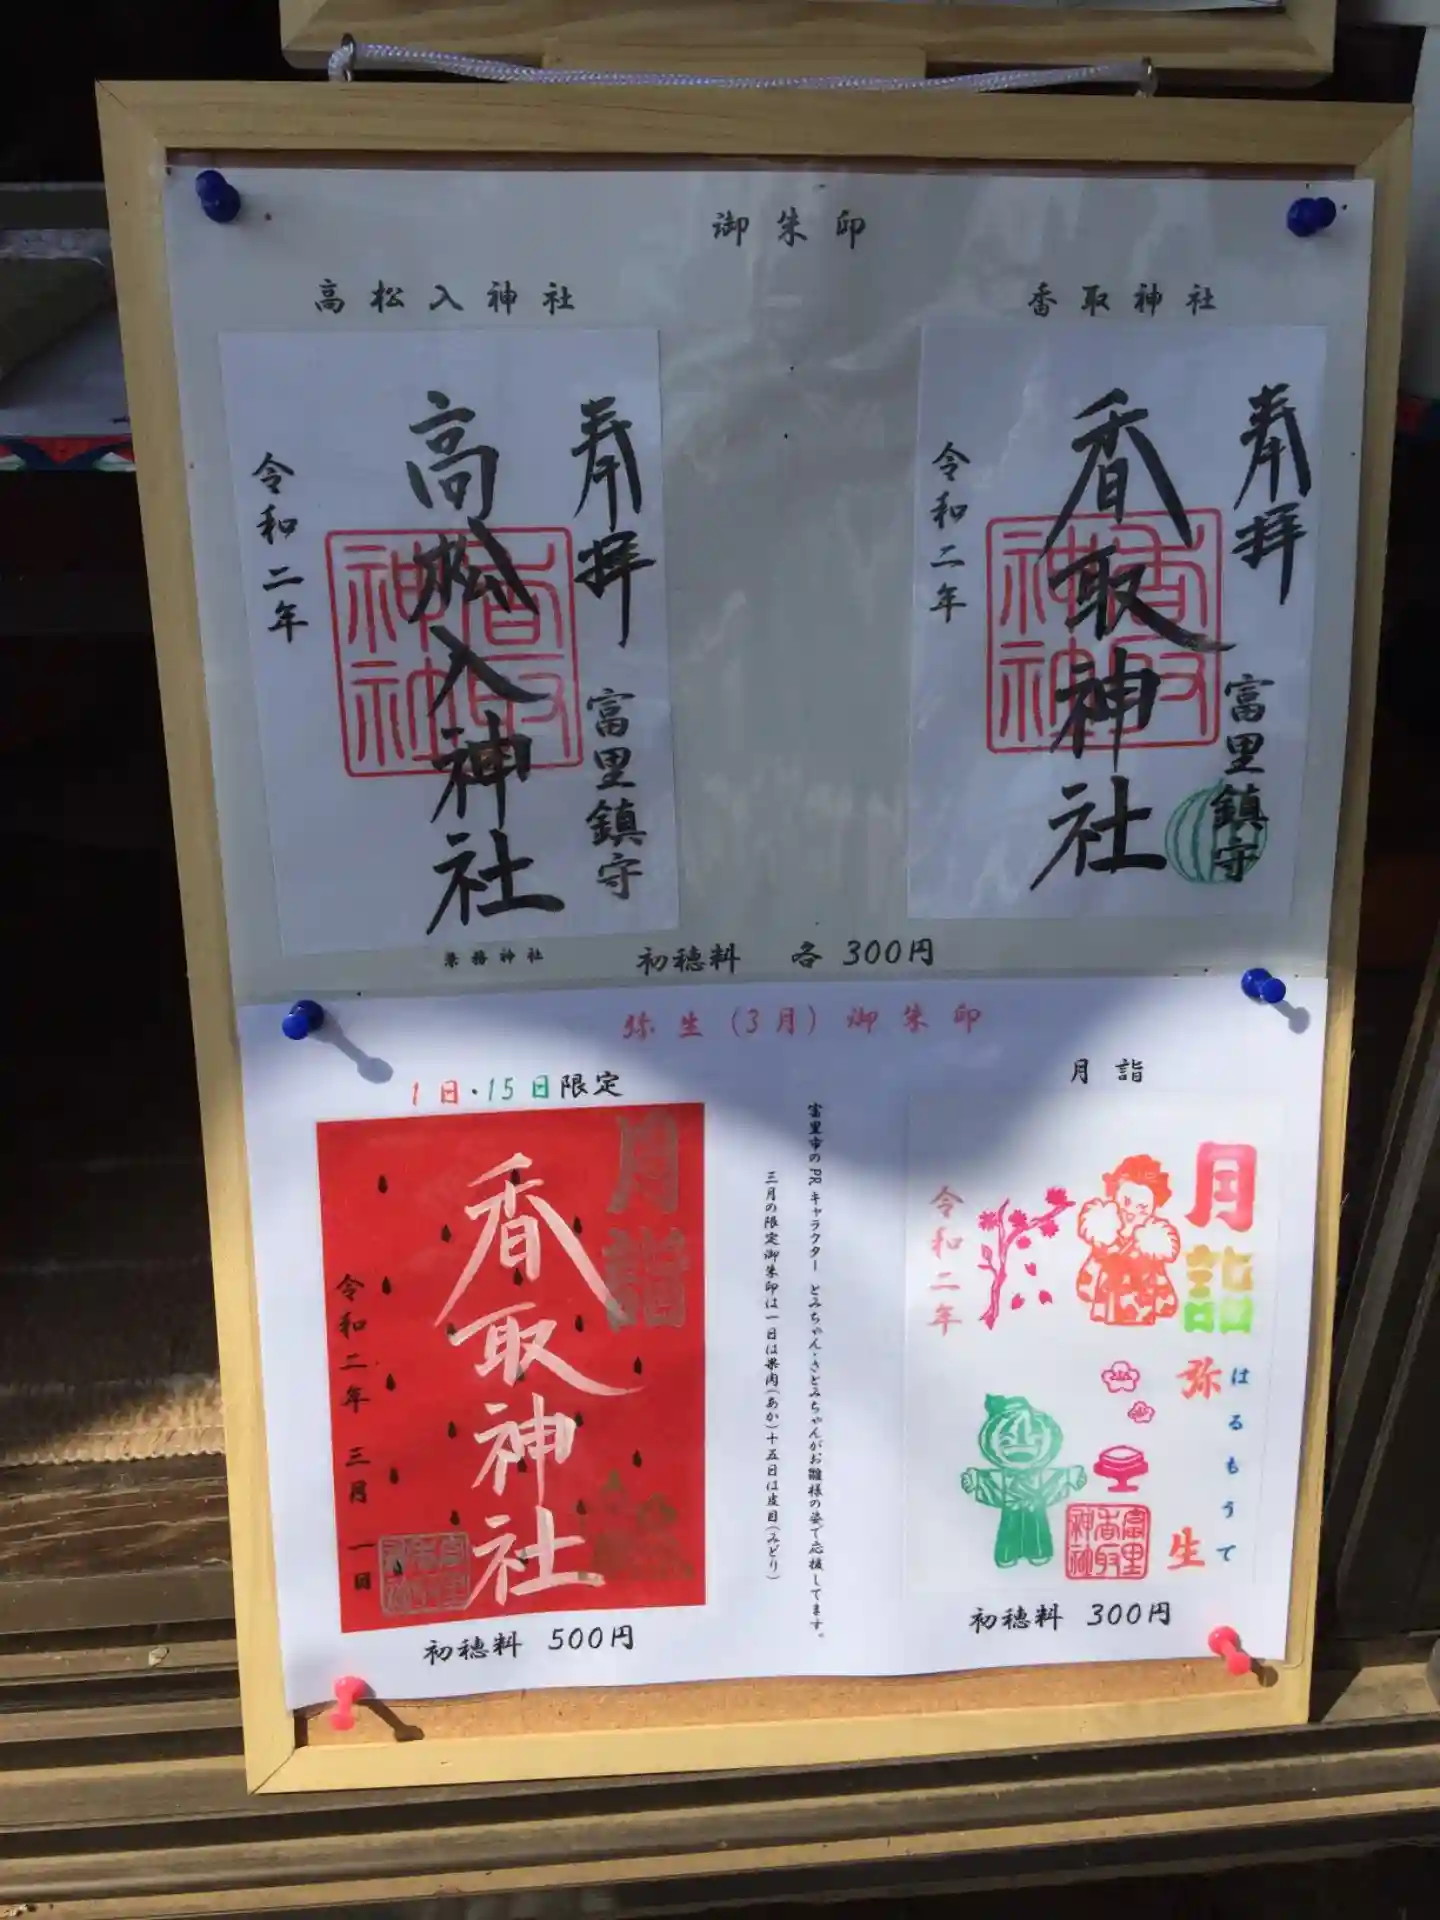 御朱印
高松入神社
香取神社
奉拝
富里鎮守
高松入神社
香取神社
令和二年
奉拝
富里鎮守
香取神社
香取神社
令和二年
兼務神社
初穂料 各 300円
弥生(3月)御朱印
1日・15日限定
月詣
月詣
香取神社
令和二年 三月 一日
初穂料 500円
富里市のPRキャラクター とみちゃん・さとみちゃんがお雛様の姿で応援してます。
三月の限定御朱印は一日は果肉(あか)十五日は皮目(みどり)
月詣
はるもうで
弥生
令和二年
富里香取神社
初穂料 300円